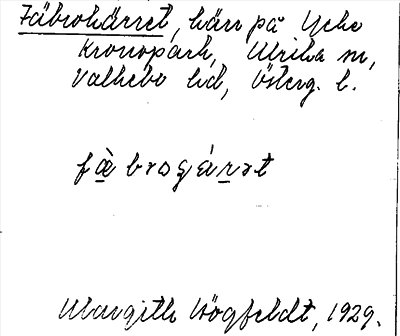 Fäbrokärret, kärr på Ycke
Kronopark, Ulrika sn,
Valkebo hd, Österg. l.
fà̲brogár̲rət
Margith Högfeldt, 1929.